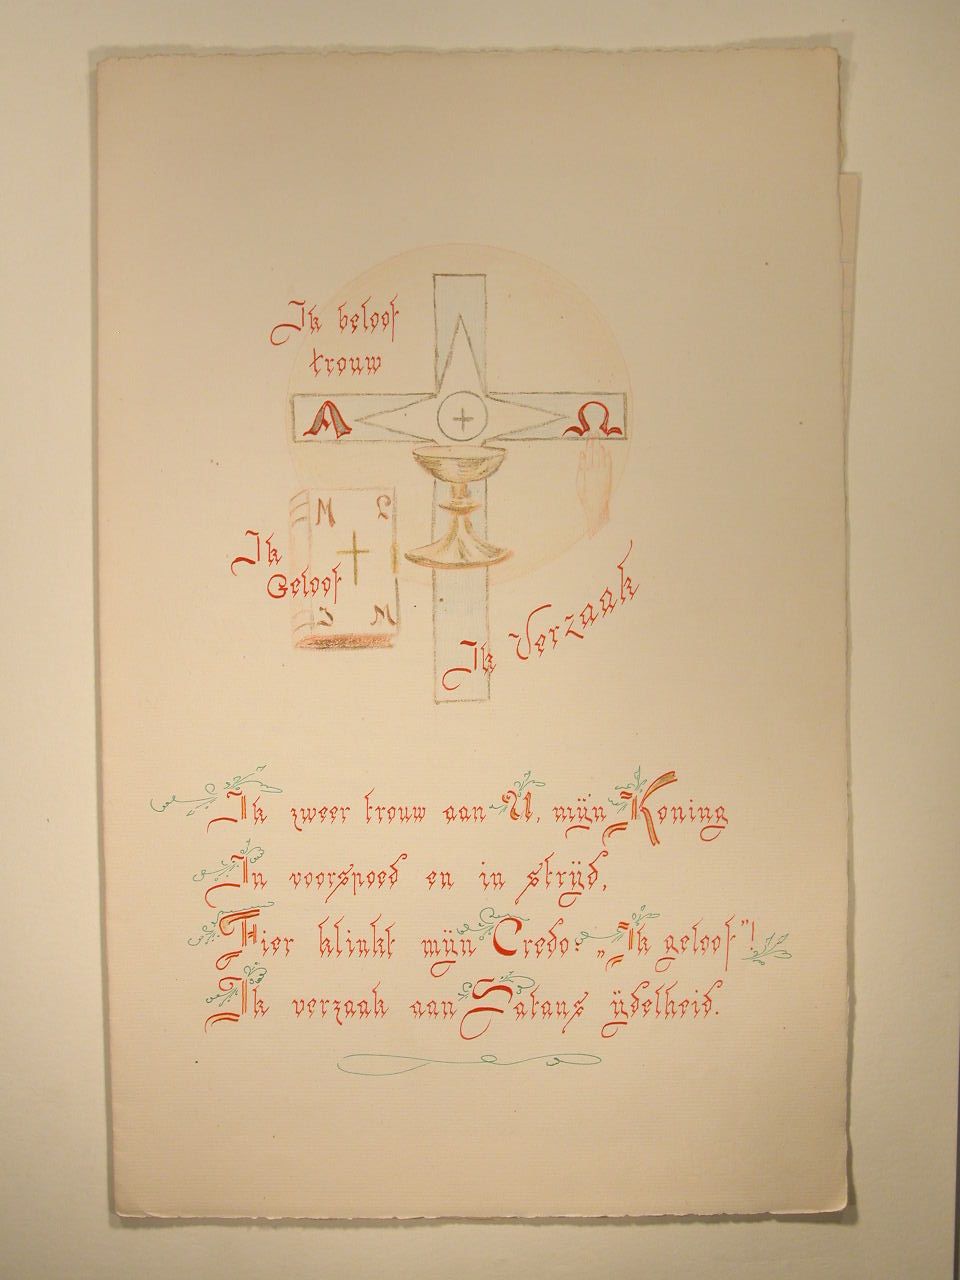 Ik beloof
trouw
A Ω
M L
Ik
Geloof
J M
Ik Verzaak
Ik zweer trouw aan U, mijn Koning
In voorspoed en in strijd,
Hier klinkt mijn Credo: „Ik geloof”!
Ik verzaak aan Satans ijdelheid.